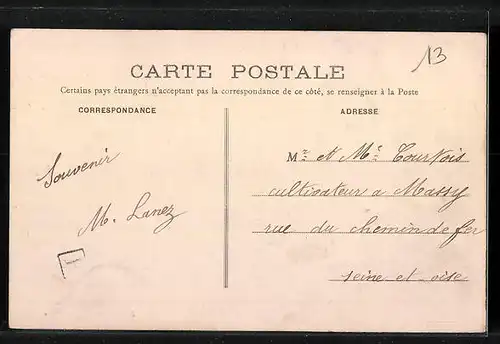 13
CARTE POSTALE
Certains pays étrangers n'acceptant pas la correspondance de ce côté, se renseigner à la Poste
CORRESPONDANCE
ADRESSE
Souvenir
M. Lanez
Mr et Me Courtois
cultivateur a Massy
rue du chemin de fer
seine et oise